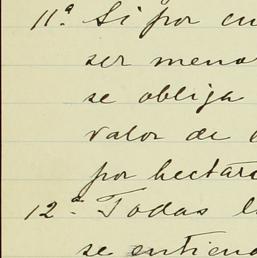 11ª. Si por cu
ser meno
se obliga
valor de
por hectáre
12ª. Todas l
se entiend